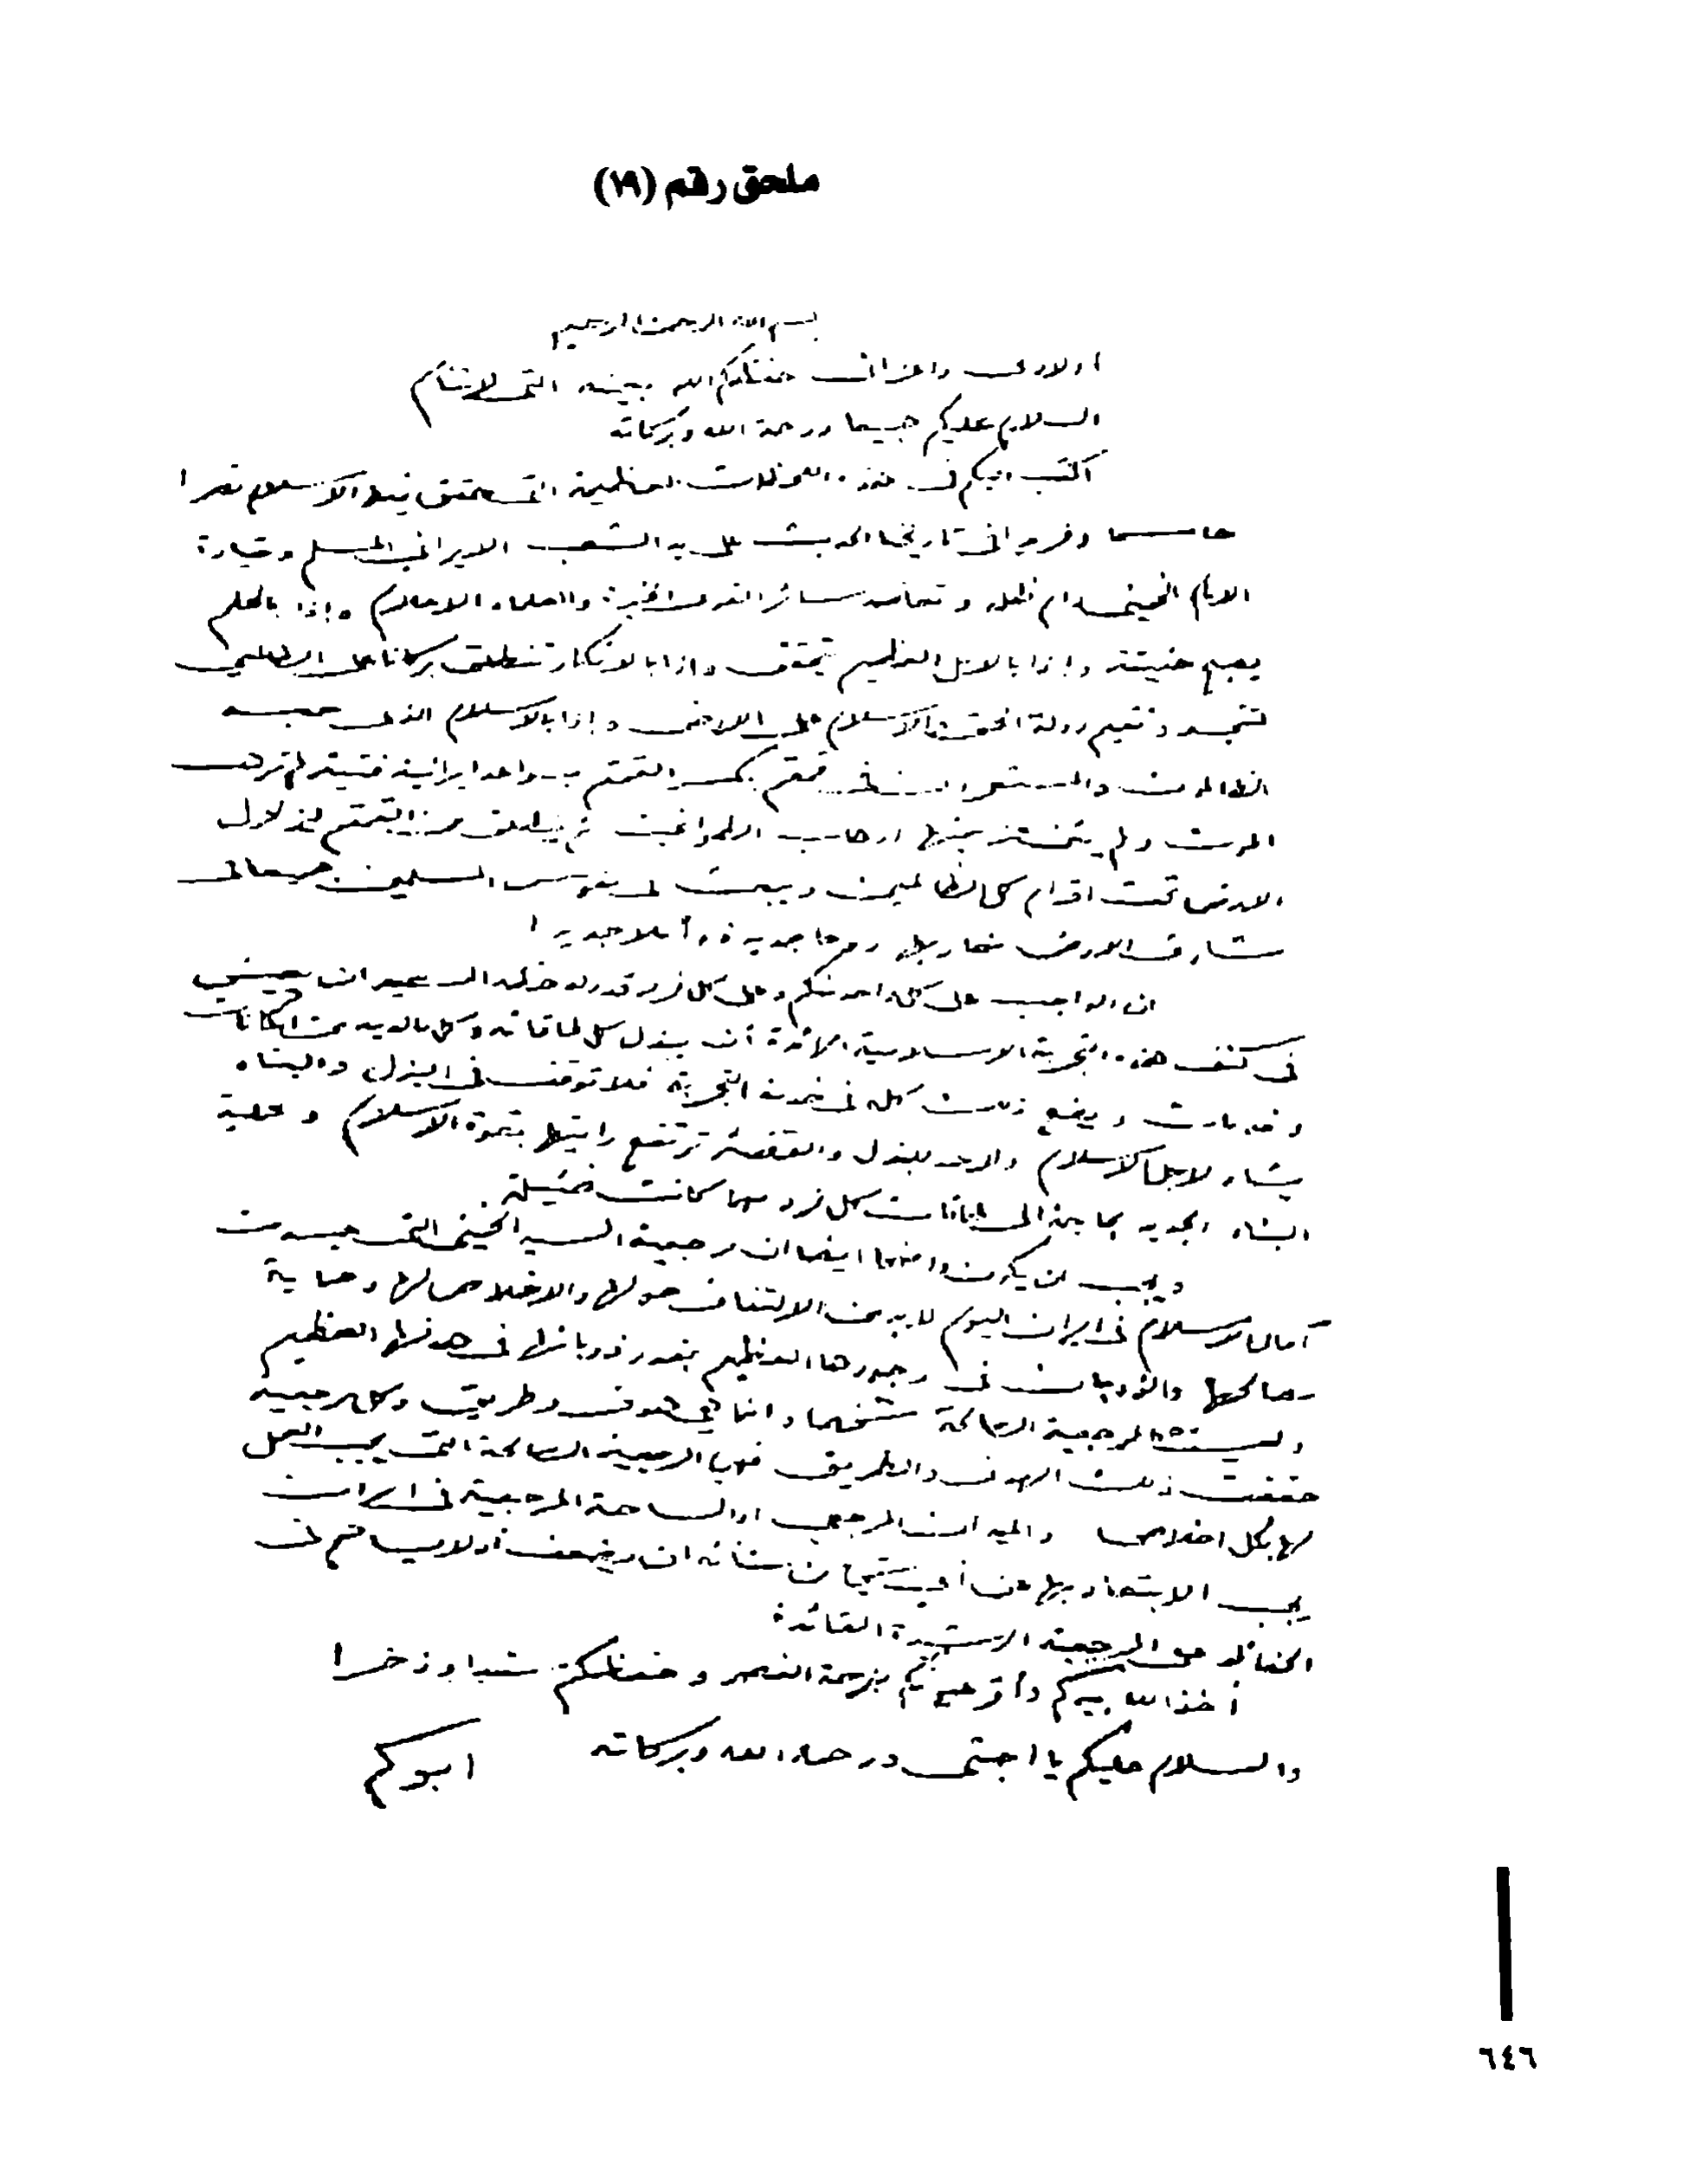 ملحق رقم (١٩)
بسم الله الرحمن الرحيم
اولادي واعزائي حفظكم الله بعينه التي لا تنام
السلام عليكم جميعا ورحمة الله وبركاته
أكتب اليكم في هذه اللحظات العظيمة التي حقق فيها الاسلام نصرا
حاسما وفريدا في تاريخنا الحديث على يد الشعب الايراني المسلم وقيادة
الامام الخميني دام ظله وتعاضد سائر القوى الخيرة والعلماء الاعلام وإذا بالحلم
يصبح حقيقة وإذا بالامل العظيم يتحقق واذا بالافكار تنطلق بركانا على الظالمين
لتتجسد وتقيم دولة الحق والاسلام على الارض وإذا بالاسلام الذي حبسه
الظالمون والمستعمرون في قمقم يكسر القمقم بسواعد ايرانية فتية لم ترهب
الموت ولم يثن عزيمتها ارهاب الطواغيت ثم ينطلق من القمقم ليزلزل
الارض تحت اقدام كل الظالمين ويبعث في نفوس المسلمين جميعا في
مشارق الارض ومغاربها روحا جديدة وأملا جديدا
ان الواجب على كل واحد منكم وعلى كل فرد قدر له حظه السعيد ان يعيش
في كنف هذه التجربة الاسلامية الرائدة أن يبذل كل طاقاته وكل ما لديه من امكانات
وخدمات ويضع ذلك كله في خدمة التجربة فلا توقف في البذل والبناء
يشاد لاجل الاسلام ولا حد للبذل والقضية ترتفع رايتها بقوة الاسلام وعملية
البناء الجديد بحاجة الى طاقات كل فرد مهما كانت ضئيلة.
ويجب ان يكون واضحا ايضا ان مرجعية السيد الخميني التي جسدت
آمال الاسلام في ايران اليوم لا بد من الالتفاف حولها والاخلاص لها وحماية
مصالحها والذوبان في وجودها العظيم بقدر ذوبانها في هدفها العظيم
وليست المرجعية الصالحة شخصا وانما هي هدف وطريق وكل مرجعية
حققت ذلك الهدف والطريق فهي المرجعية الصالحة التي يجب العمل
لها بكل اخلاص والميدان المرجعي او الساحة المرجعية في ايران
يجب الابتعاد بها عن أي شيء من شأنه ان يضعف أو لا يساهم في
الحفاظ على المرجعية الرشيدة القائدة
أخذ الله بيدكم وأقر عيونكم بفرحة النصر وحفظكم سندا وذخرا
والسلام عليكم يا احبتي ورحمة الله وبركاته
ابوكم
٦٤٦